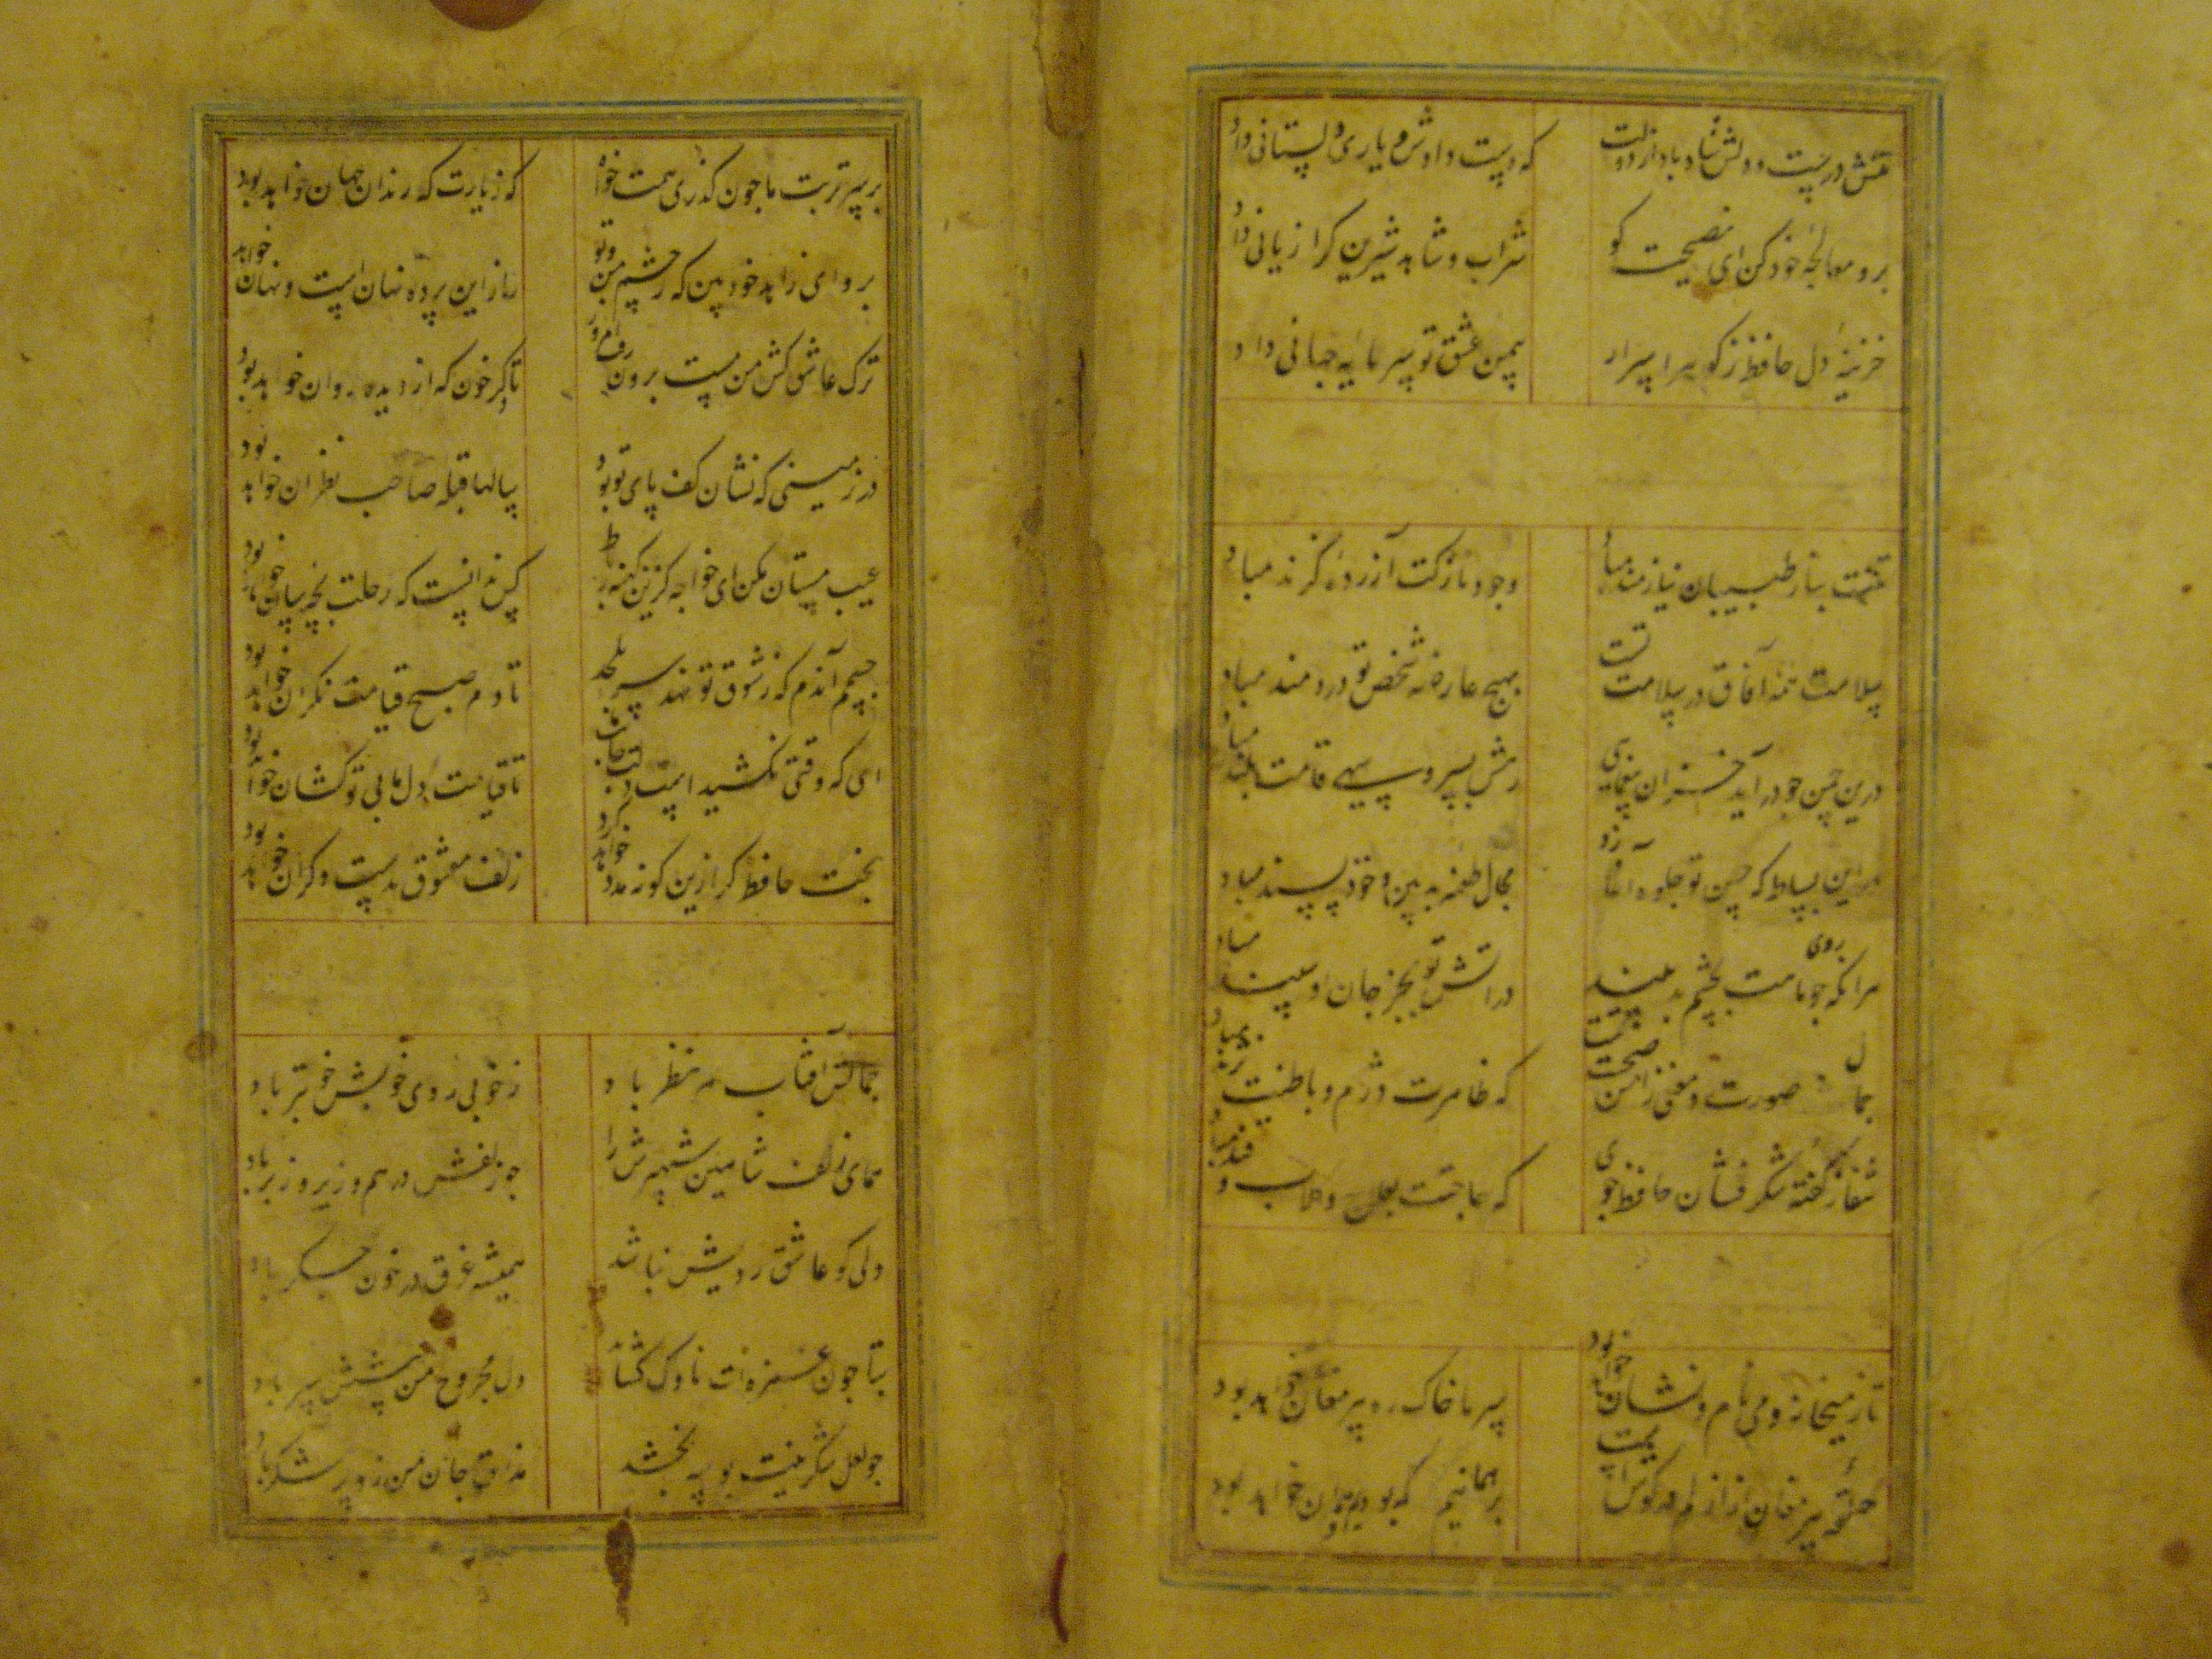 تنش درست و دلش شاد باد از دولت که دست دادش و یاری دلستانی داد
برو معالجه خود کن ای نصیحت کو شراب و شاهد شیرین کرا زیانی داد
خزینه دل حافظ ز کوهر اسرار بیمن عشق تو سرمایه جهانی داد
تنت بناز طبیبان نیازمند مباد وجود نازکت آزرده گزند مباد
سلامت همه آفاق در سلامت تست بهیچ عارضه شخص تو دردمند مباد
درین چمن جو درآید خزان بیغمایی رهش بسرو سهی قامت بلند مباد
دران بساط که حسن تو جلوه آغازد مجال طعنه بدبین و خودپسند مباد
هرانکه روی جو ماهت بچشم بد بیند در اتش تو بجز جان او سپند مباد
جمال صورت و معنی ز امن صحت تست که ظاهرت دژم و باطنت نژند مباد
شفا ز کفته شکرفشان حافظ جوی که حاجتت بعلاج کلاب و قند مباد
تا ز میخانه و می نام و نشان خواهد بود سر ما خاک ره پیر مغان خواهد بود
حلقه پیر مغان از ازلم در کوش است بر همانیم که بودیم و همان خواهد بود
بر سر تربت ما جون کذری همت خواه که زیارت که رندان جهان خواهد بود
برو ای زاهد خودبین که ز چشم من و تو راز این پرده نهان است و نهان خواهد
ترک عاشق کش من مست برون رفت امروز تا دکر خون که از دیده روان خواهد بود
در زمینی که نشان کف پای تو بود سالها قبله صاحب نظران خواهد بود
عیب مستان مکن ای خواجه کزین کهنه رباط کس ندانست که رحلت بچه سان خواهد بود
چشمم آندم که ز شوق تو نهد سر بلحد تا دم صبح قیامت نکران خواهد بود
بخت حافظ کر ازین کونه مدد خواهد کرد زلف معشوق بدست دکران خواهد بود
جمالش آفتاب هر نظر باد ز خوبی روی خوبش خوبتر باد
همای زلف شاهین شهپرش را جو زلفش درهم و زیر و زبر باد
دلی کو عاشق رویش نباشد همیشه غرق در خون جکر باد
بتا جون غمزه ات ناوک کشاید دل مجروح من پیشش سپر باد
جو لعل شکرینت بوسه بخشد مذاق جان من زو پر شکر باد